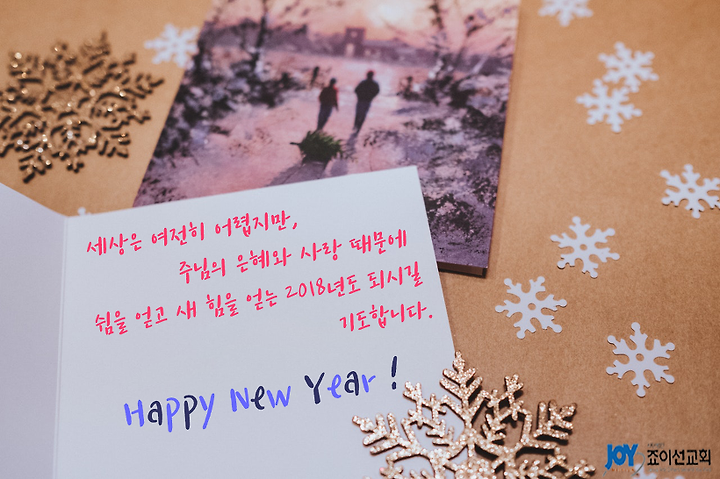 세상은 여전히 어렵지만,
주님의 은혜와 사랑 때문에
쉼을 얻고 새 힘을 얻는 2018년도 되시길
기도합니다.
Happy New Year !
JOY 죠이선교회